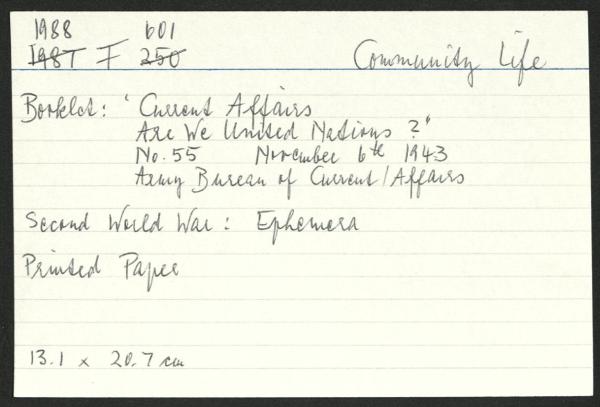 1988 601
198T F 250 Community Life
Booklet: "Current Affairs
Are We United Nations?"
No. 55 November 6th 1943
Army Bureau of Current/Affairs
Second World War: Ephemera
Printed Paper
13.1 x 20.7 cm